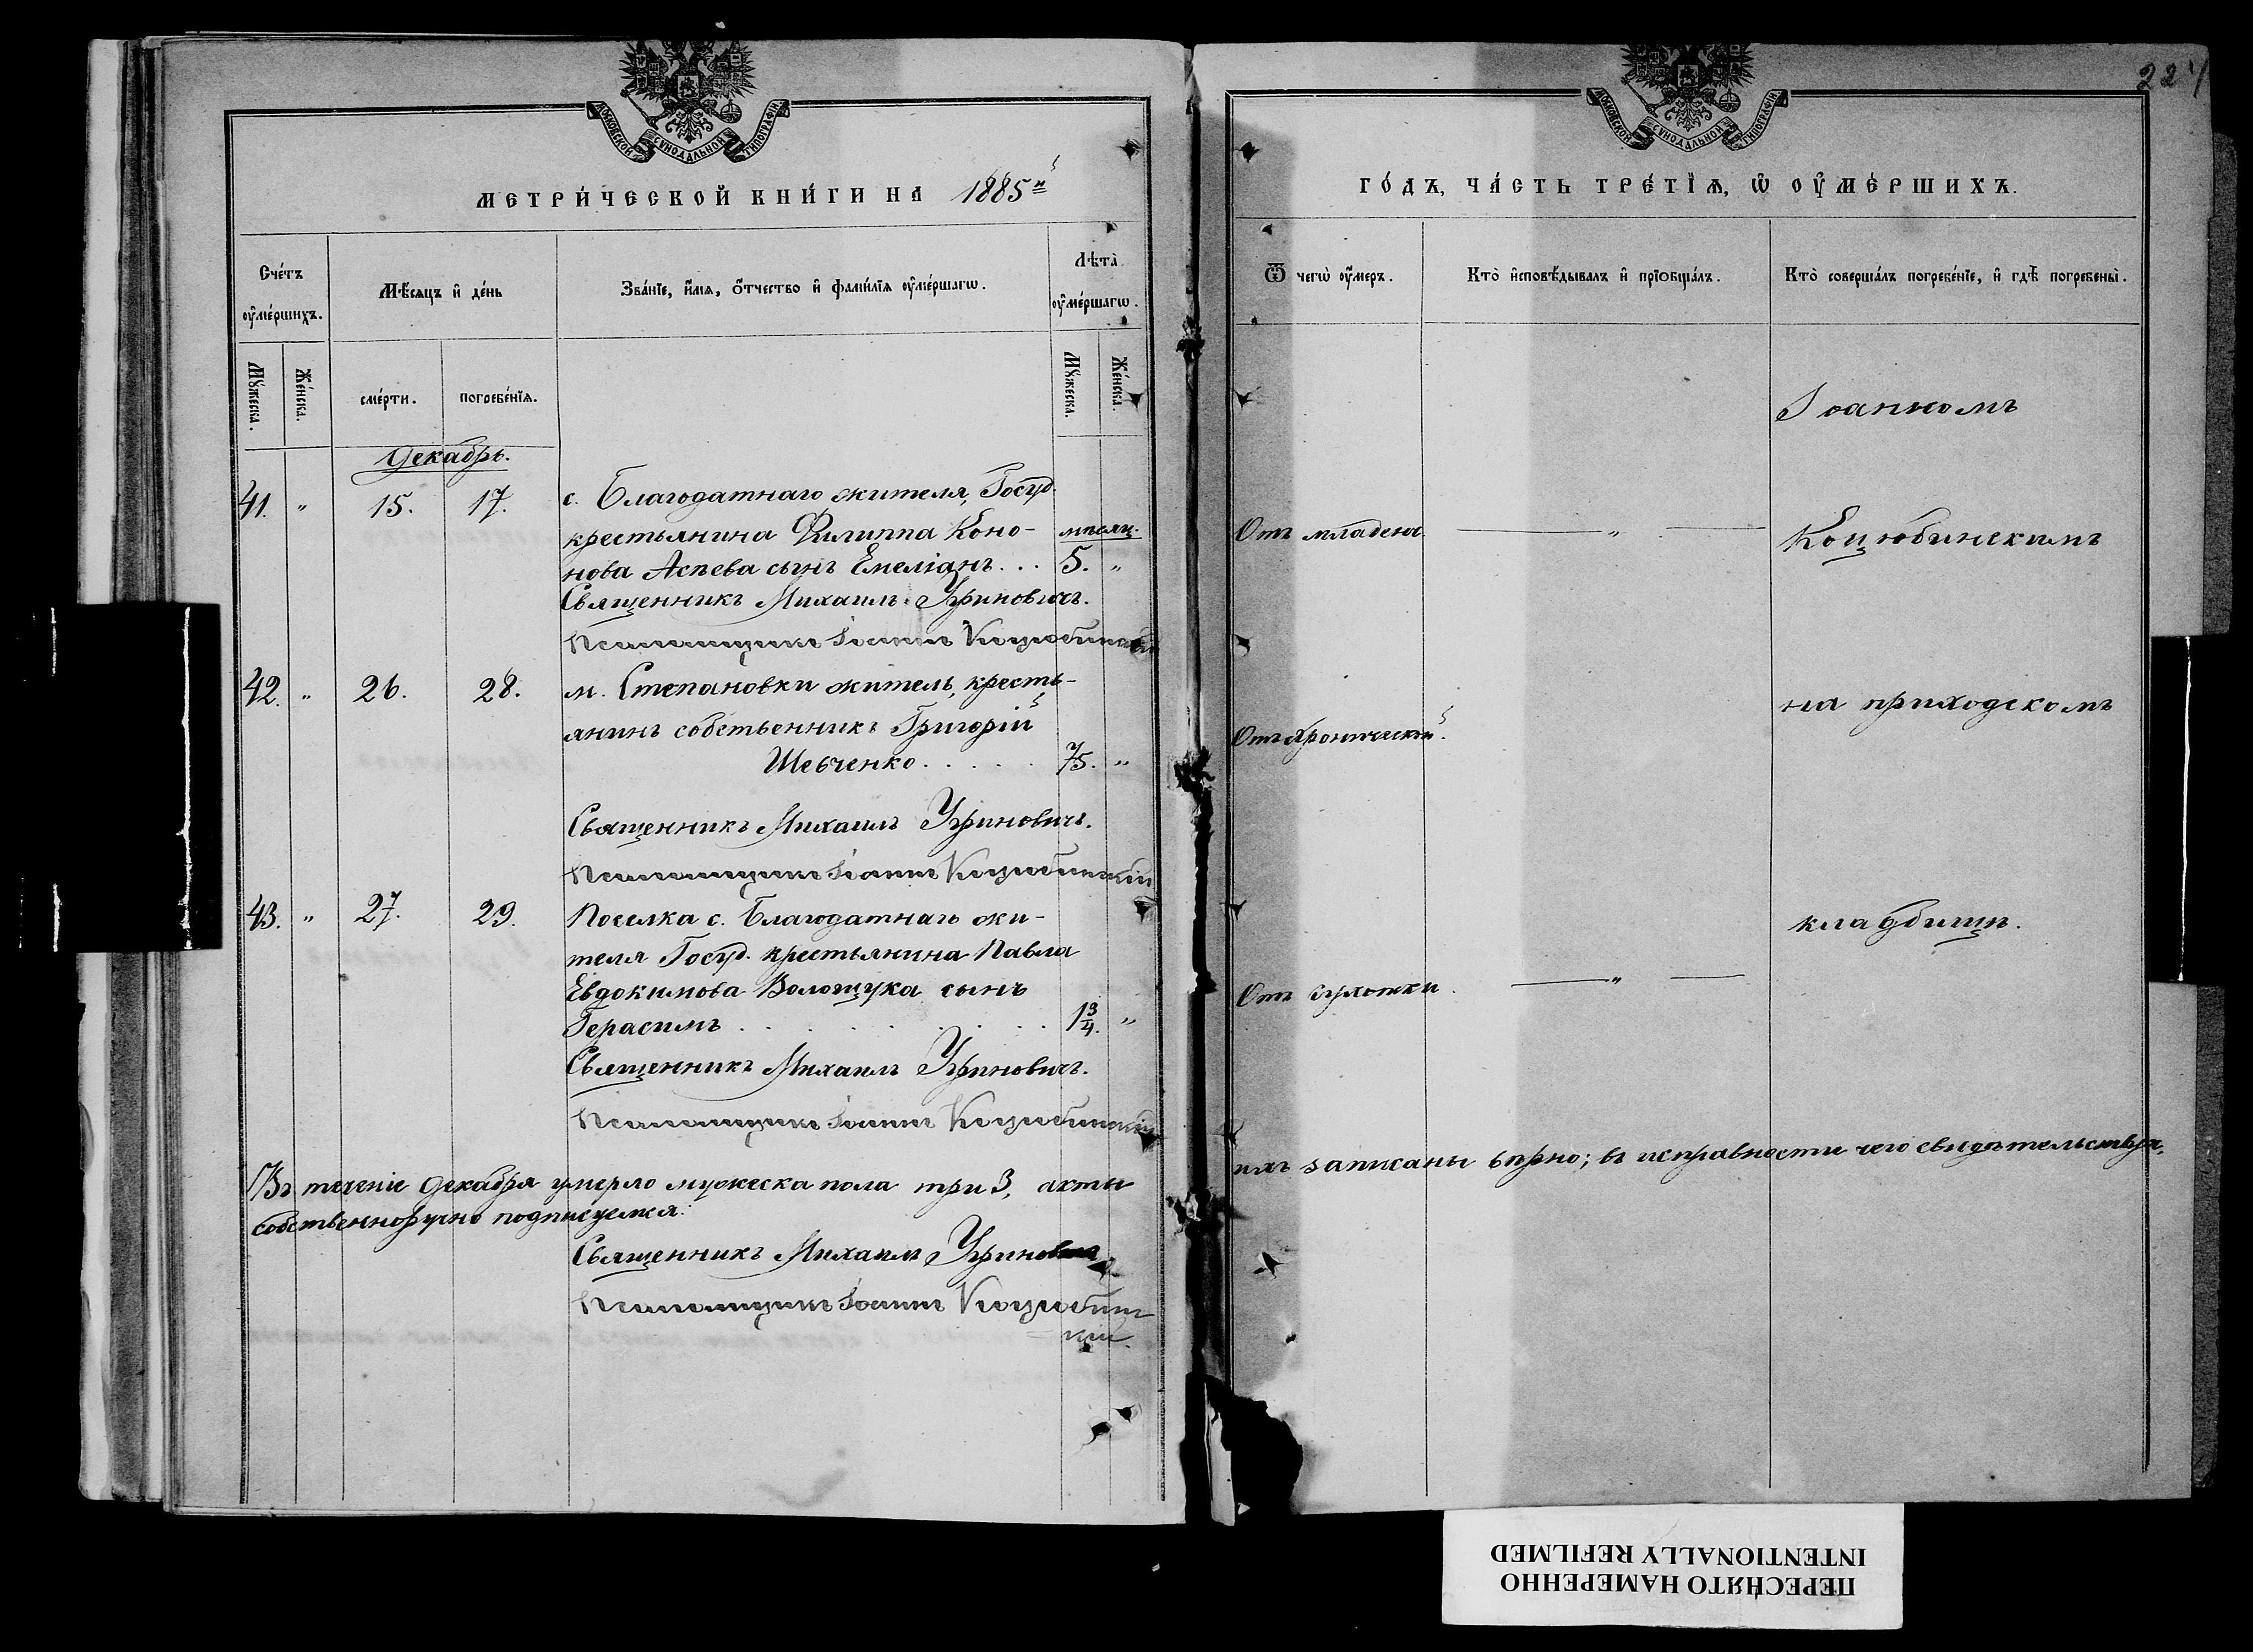 МОСКОВСКОЙ СѴНОДАЛЬНОЙ ТИПОГРАФІИ
МЕТРИ́ЧЕСКОЙ КНИ́ГИ НА 1885й
Сче́тъ оу҆ме́ршихъ.
Мѣ́сяцъ и҆ де́нь
Зва́нїе, и҆́мя, ѻ҆́тчество и҆ фами́лїя оу҆ме́ршагѡ.
Лѣта̀ оу҆ме́ршагѡ.
Мꙋ́жеска.
Же́нска.
сме́рти.
погребе́нїѧ.
Мꙋ́жеска.
Же́нска.
Декабрь.
41. " 15. 17. с. Благодатнаго жителя, Госуд.
крестьянина Филиппа Коно- мѣсяц.
нова Асѣева сынъ Емеліанъ... 5. "
Священникъ Михаилъ Угриновичъ.
Псаломщикъ Іоаннъ Коцюбинскій
42. " 26. 28. м. Степановки житель, кресть-
янинъ собственникъ Григорій
Шевченко..... 75. "
Священникъ Михаилъ Угриновичъ.
Псаломщикъ Іоаннъ Коцюбинскій
43. " 27. 29. Поселка с. Благодатнаго жи-
теля Госуд. крестьянина Павла
Евдокимова Волощука сынъ
Герасимъ......... 1 3/4. "
Священникъ Михаилъ Угриновичъ.
Псаломщикъ Іоаннъ Коцюбинскій
Въ теченіе Декабря умерло мужеска пола три 3, акты
собственноручно подписуемся:
Священникъ Михаилъ Угриновичъ
Псаломщикъ Іоаннъ Коцюбин-
скій.
МОСКОВСКОЙ СѴНОДАЛЬНОЙ ТИПОГРАФІИ
ГО́ДЪ, ЧА́СТЬ ТРЕ́ТЇѦ, Ѡ҆ ОУ҆МЕ́РШИХЪ.
Ѿ чегѡ̀ оу҆́меръ.
Кто̀ и҆сповѣ́дывалъ и҆ прїѻбща́лъ.
Кто̀ соверша́лъ погребе́нїе, и҆ гдѣ̀ погребены̀.
Іоанномъ
Отъ младена. — " — Коцюбинскимъ
на приходскомъ
Отъ хроническій.
кладбищѣ.
Отъ сухотки. — " —
ихъ записаны вѣрно; въ исправности чего свидѣтельствуя,
ПЕРЕСНЯТО НАМЕРЕННО
INTENTIONALLY REFILMED